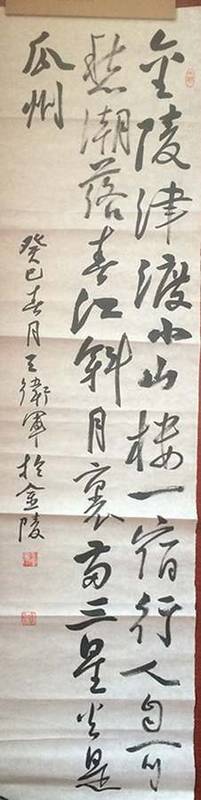 金陵津渡小山樓一宿行人自可
愁潮落春江斜月裏兩三星火是
瓜州
癸巳春月王衛軍於金陵